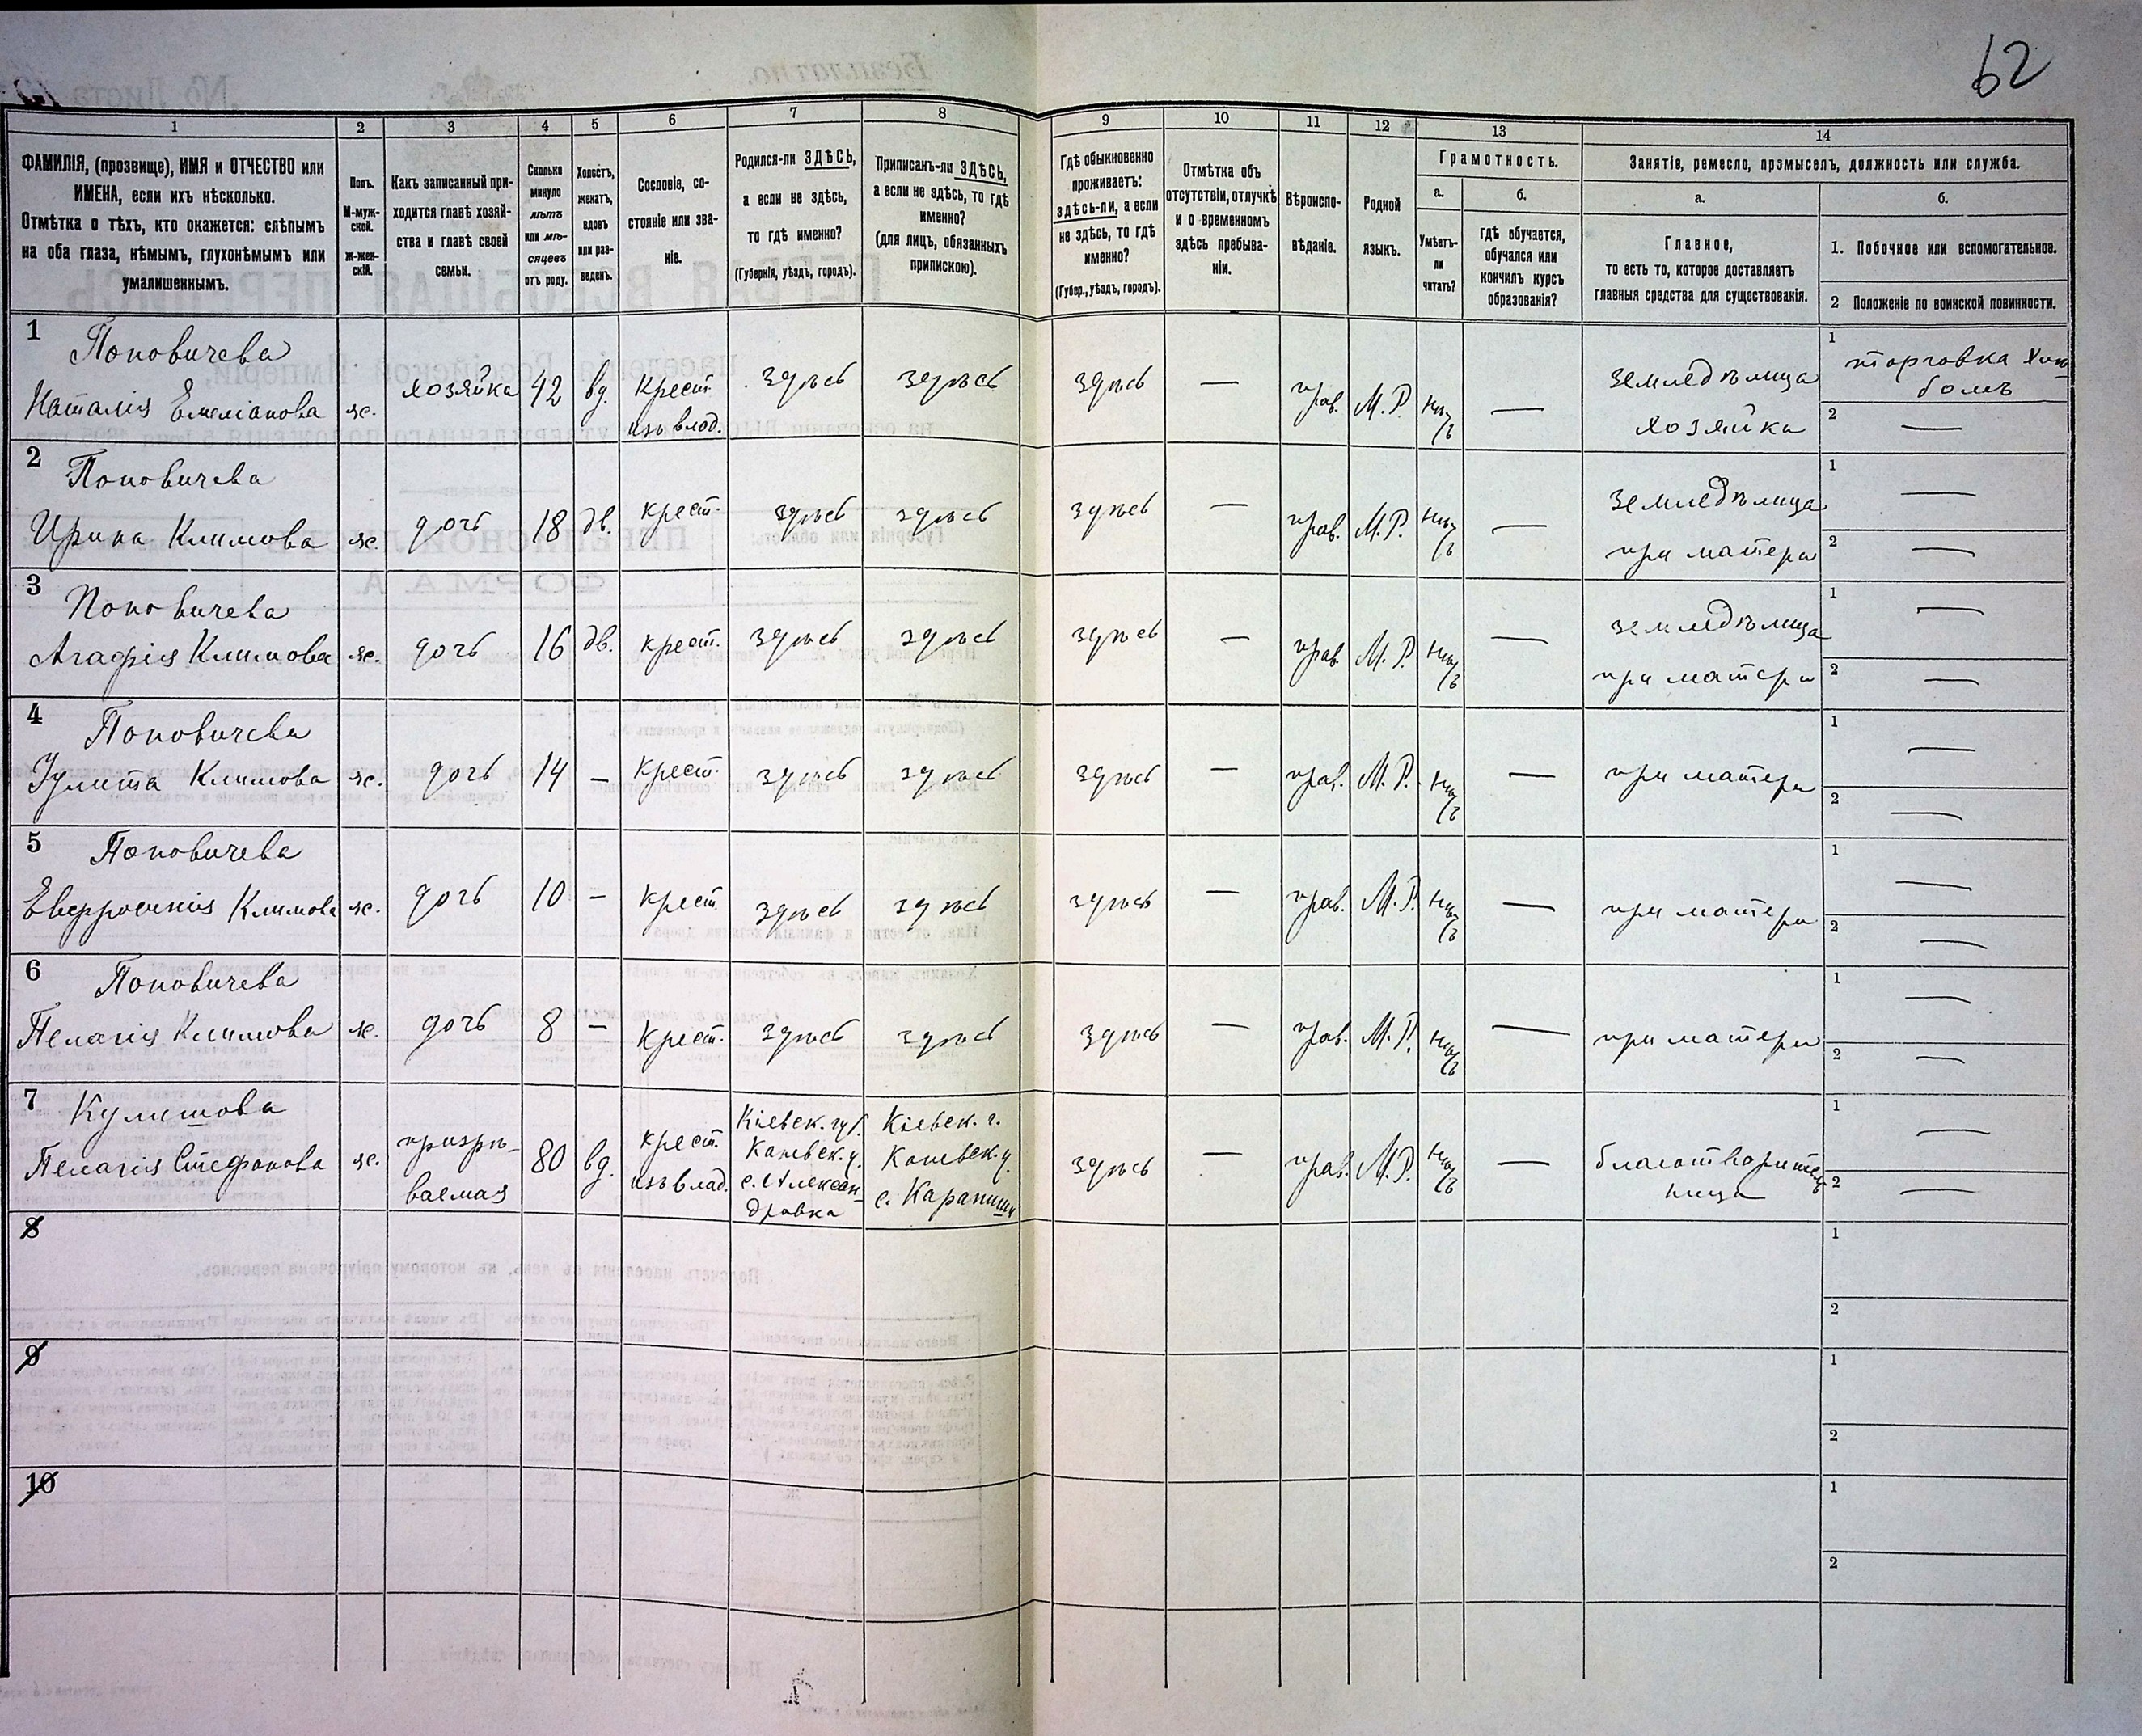 62
1 2 3 4 5 6 7 8 9 10 11 12 13 14
ФАМИЛІЯ, (прозвище), ИМЯ и ОТЧЕСТВО или
ИМЕНА, если ихъ нѣсколько.
Отмѣтка о тѣхъ, кто окажется: слѣпымъ
на оба глаза, нѣмымъ, глухонѣмымъ или
умалишеннымъ.
Полъ.
М-муж-
ской.
ж-жен-
скій.
Какъ записанный при-
ходится главѣ хозяй-
ства и главѣ своей
семьи.
Сколько
минуло
лѣтъ
или мѣ-
сяцевъ
отъ роду.
Холостъ,
женатъ,
вдовъ
или раз-
веденъ.
Сословіе, со-
стояніе или зва-
ніе.
Родился-ли ЗДѢСЬ,
а если не здѣсь,
то гдѣ именно?
(Губернія, уѣздъ, городъ).
Приписанъ-ли ЗДѢСЬ,
а если не здѣсь, то гдѣ
именно?
(для лицъ, обязанныхъ
припискою).
Гдѣ обыкновенно
проживаетъ:
здѣсь-ли, а если
не здѣсь, то гдѣ
именно?
(Губер., уѣздъ, городъ).
Отмѣтка объ
отсутствіи, отлучкѣ
и о временномъ
здѣсь пребыва-
ніи.
Вѣроиспо-
вѣданіе.
Родной
языкъ.
Грамотность.
а.
Умѣетъ-
ли
читать?
б.
гдѣ обучается,
обучался или
кончилъ курсъ
образованія?
Занятія, ремесло, промыселъ, должность или служба.
а.
Главное,
то есть то, которое доставляетъ
главныя средства для существованія.
б.
1. Побочное или вспомогательное.
2 Положеніе по воинской повинности.
1
Поповичева
Наталія Емеліанова
ж.
хозяйка
42
вд.
крест.
изъ влад.
здѣсь
здѣсь
здѣсь
—
прав.
М. Р.
нѣтъ
—
земледѣлица
хозяйка
1
торговка хлѣ-
бомъ
2 —
2
Поповичева
Ирина Климова
ж.
дочь
18
дв.
крест.
здѣсь
здѣсь
здѣсь
—
прав.
М. Р.
нѣтъ
—
земледѣлица
при матери
1 —
2 —
3
Поповичева
Агафія Климова
ж.
дочь
16
дв.
крест.
здѣсь
здѣсь
здѣсь
—
прав.
М. Р.
нѣтъ
—
земледѣлица
при матери
1 —
2 —
4
Поповичева
Іулита Климова
ж.
дочь
14
—
крест.
здѣсь
здѣсь
здѣсь
—
прав.
М. Р.
нѣтъ
—
при матери
1 —
2 —
5
Поповичева
Евфросинія Климова
ж.
дочь
10
—
крест.
здѣсь
здѣсь
здѣсь
—
прав.
М. Р.
нѣтъ
—
при матери
1 —
2 —
6
Поповичева
Пелагія Климова
ж.
дочь
8
—
крест.
здѣсь
здѣсь
здѣсь
—
прав.
М. Р.
нѣтъ
—
при матери
1 —
2 —
7
Кулишова
Пелагія Стефанова
ж.
призрѣ-
ваемая
80
вд.
крест.
изъ влад.
Кіевск. губ.
Каневск. у.
с. Алексан-
дровка
Кіевск. г.
Каневск. у.
с. Карапиши
здѣсь
—
прав.
М. Р.
нѣтъ
—
1 —
2 —
8
1
2
9
1
2
10
1
2